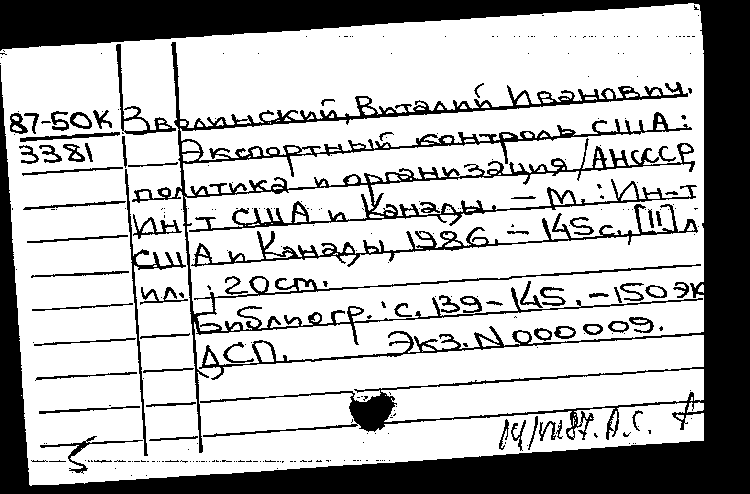 87-50К Зволинский, Виталий Иванович.
3381 Экспортный контроль США:
политика и организация / АНСССР,
Ин-т США и Канады. – М.: Ин-т
США и Канады, 1986. – 145 с., [II] л.
ил. ; 20 см.
Библиогр.: с. 139-145. – 150 эк
ДСП. Экз. N 000009.
87. А.С.
5